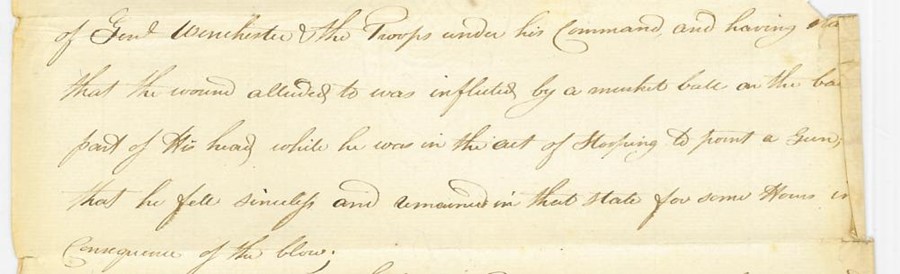 of Genl Winchester & the Troops under his Command, and having
that the wound alluded to was inflicted by a musket ball on the ba
part of His head while he was in the act of Stooping to point a Gun,
that he fell sinceless and remained in that state for some Hours in
Consequence of the blow;